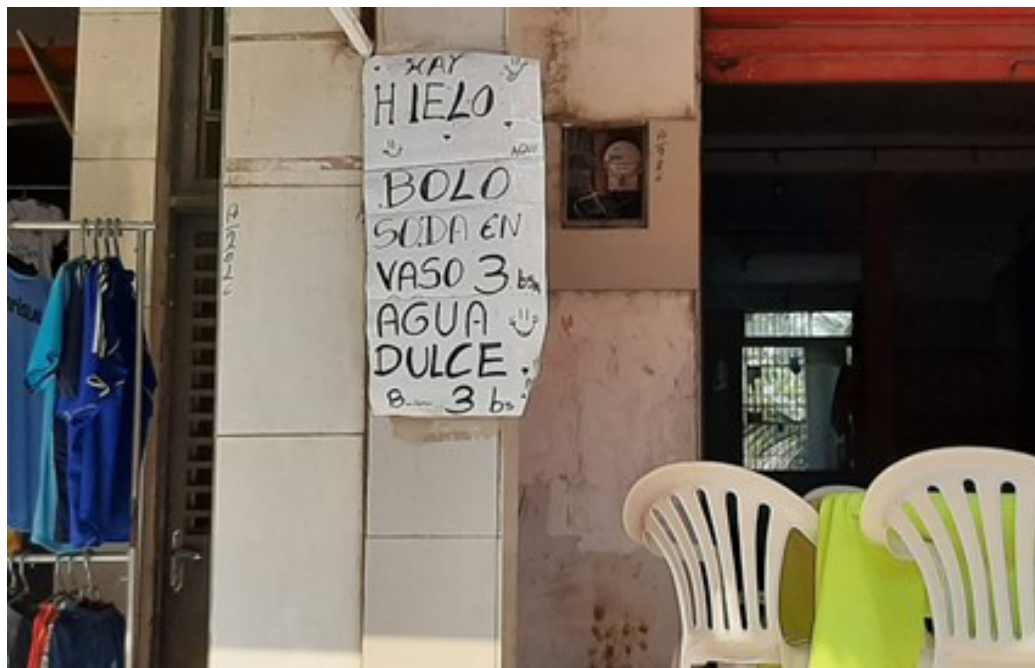 HAY
HIELO
AQUI
BOLO
SODA EN
VASO 3 bs
AGUA
DULCE
3 bs